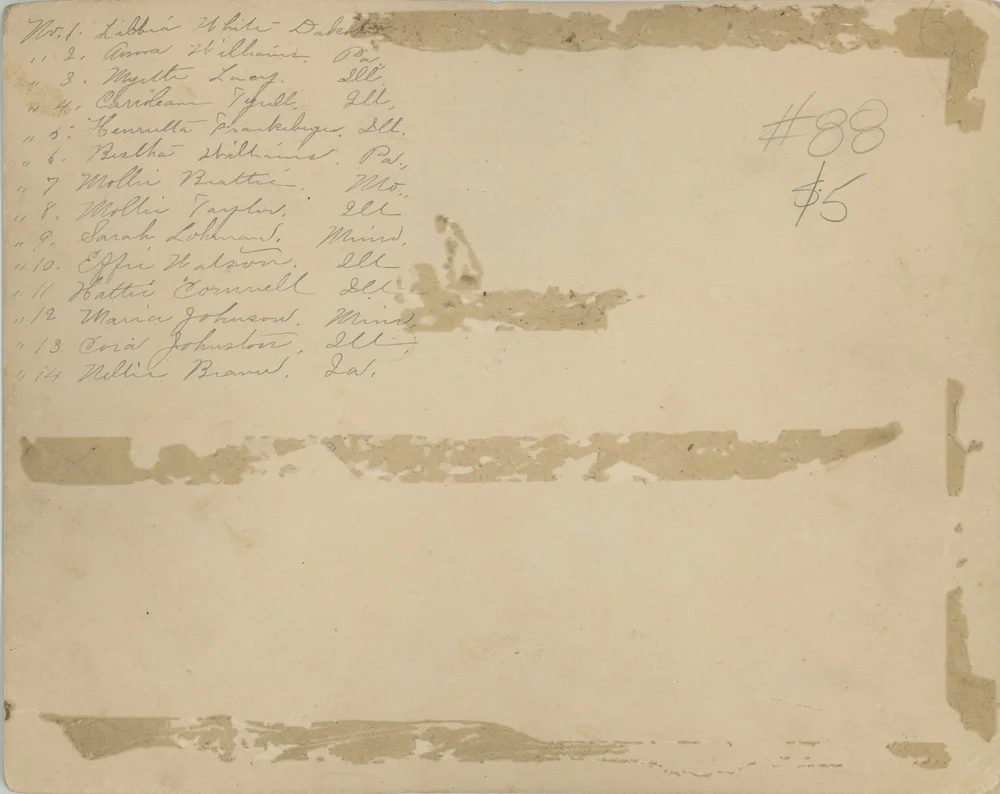 No. 1. Libbia White Dakota
" 2. Anna Williams. Pa.
" 3. Myrtle Lacy. Ill.
" 4. Carrieann Tyrell, Ill.
" 5. Henrietta Ill.
" 6. Bertha Williams. Pa.,
" 7 Mollie Beattie. Mo.
" 8. Mollie Taylor. Ill
" 9. Sarah Lohman. Minn.
" 10. Effie Watson. Ill
" 11 Hattie Cornwell Ill
" 12 Maria Johnson. Minn
" 13. Cora Johnston, Ill
" 14 Nellie Ia.
#88
$5